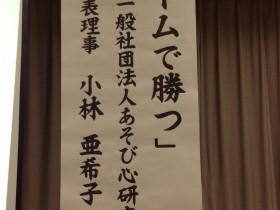 ームで勝つ」
一般社団法人あそび心研
表理事 小林 亜希子